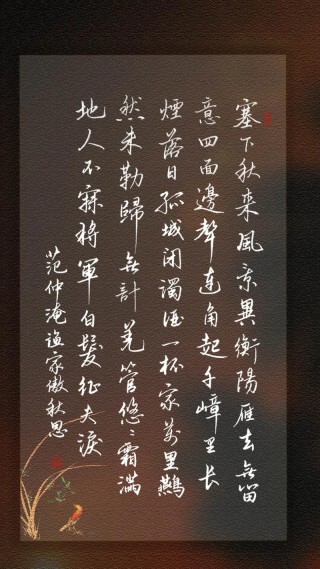 塞下秋来風景異衡陽雁去無留
意四面邊聲連角起千嶂里长
煙落日孤城闭濁酒一杯家万里燕
然未勒歸無計羌管悠悠霜满
地人不寐将軍白髮征夫淚
范仲淹渔家傲秋思